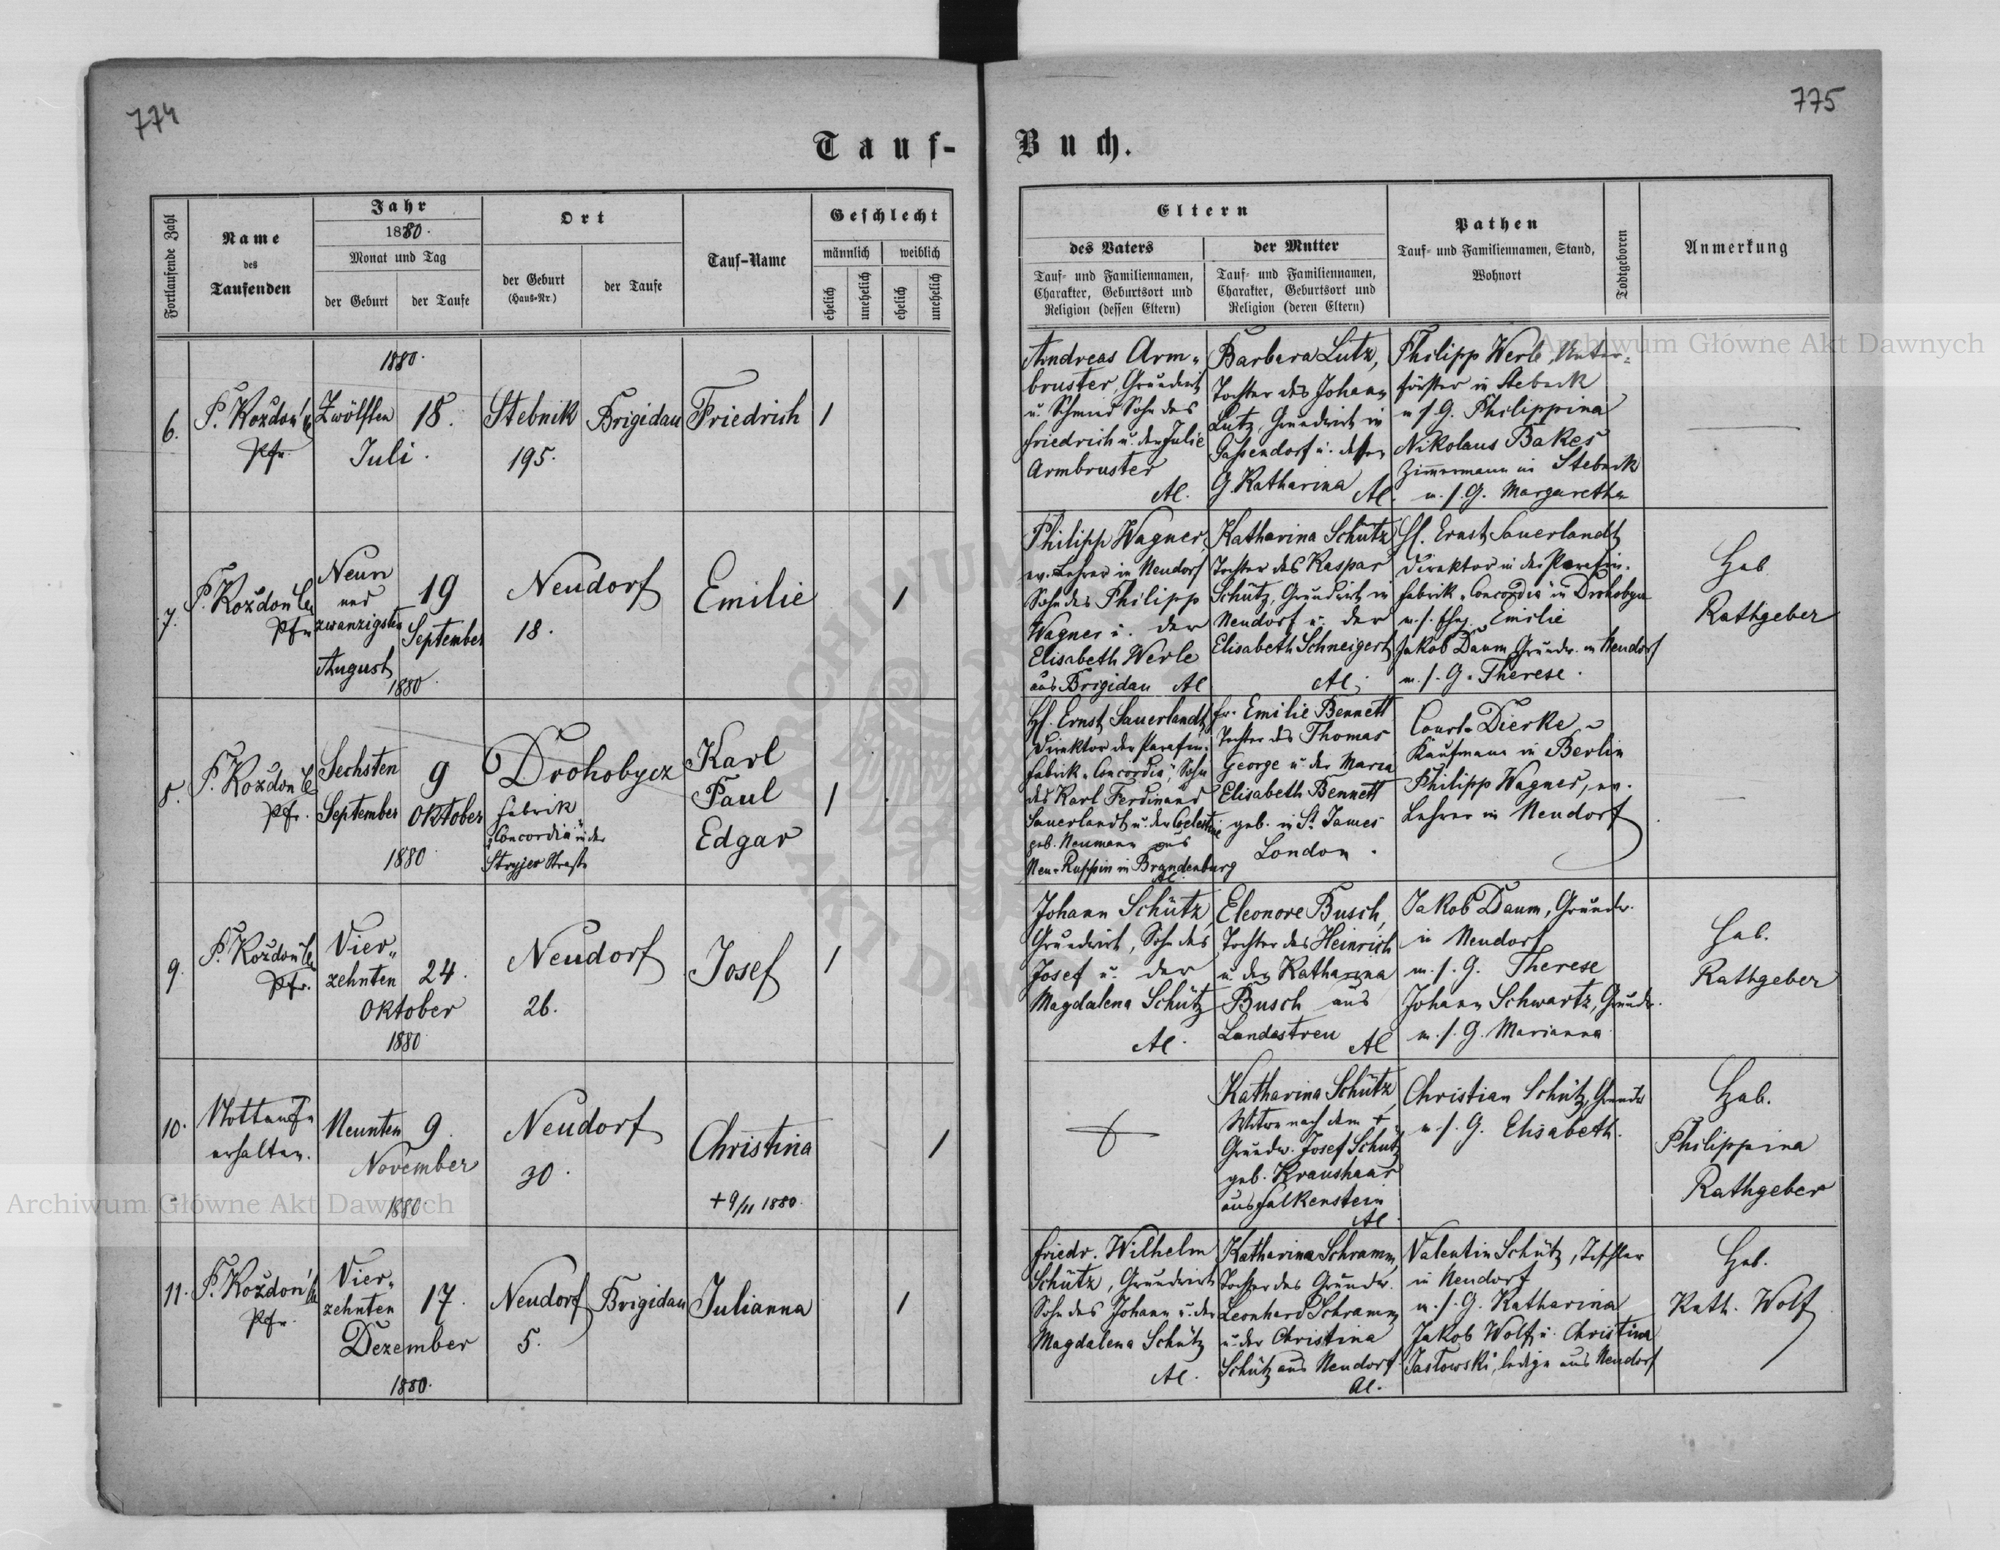 774
775
Tauf-
Buch.
Fortlaufende Zahl
Name
des
Taufenden
Jahr
1880.
Monat und Tag
der Geburt
der Taufe
Ort
der Geburt
(Haus-Nr.)
der Taufe
Tauf-Name
Geschlecht
männlich
weiblich
ehelich
unehelich
ehelich
unehelich
Eltern
des Vaters
Tauf- und Familiennamen,
Charakter, Geburtsort und
Religion (dessen Eltern)
der Mutter
Tauf- und Familiennamen,
Charakter, Geburtsort und
Religion (deren Eltern)
Pathen
Tauf- und Familiennamen, Stand,
Wohnort
Todtgeboren
Anmerkung
6.
Pfr.
1880.
Zwölften
Juli.
18.
Stebnik
195.
Brigidau
Friedrich
1
Andreas Arm-
bruster, Grundwirt
u. Schmied Sohn des
Friedrich u. der Julie
Armbruster
AC.
Barbara Lutz,
Tochter des Johann
Lutz, Grundwirt in
Gassendorf u. dessen
G. Katharina AC.
Philipp Werle, Unter-
förster in Stebnik
u. s. G. Philippina
Nikolaus Bakes
Zimmermann in Stebnik
u. s. G. Margaretha
7.
Pfr.
Neun
und
zwanzigsten
August
1880.
19
September
Neudorf
18.
Emilie
1
Philipp Wagner,
ev. Lehrer in Neudorf
Sohn des Philipp
Wagner u. der
Elisabeth Werle
aus Brigidau AC
Katharina Schütz
Tochter des Kaspar
Schütz, Grundwirt in
Neudorf u. der
Elisabeth Schneigert
AC.
H. Ernst Sauerlandt
Direktor in der Parafin-
fabrik "Concordia" in Drohobycz
Emilie
Jakob Daum Grundw. in Neudorf
u. s. G. Therese.
Heb
Rathgeber
8.
Pfr.
Sechsten
September
1880
9
Oktober
Drohobycz
Fabrik
"Concordia" in der
Stryjer Straße
Karl
Paul
Edgar
1
H. Ernst Sauerlandt,
Direktor der Parafin-
fabrik "Concordia", Sohn
des Karl Ferdinand
Sauerlandt u. der Coelestine
geb. Neumann aus
Neu-Ruppin in Brandenburg
AC.
Fr. Emilie Bennett
Tochter des Thomas
George u. der Maria
Elisabeth Bennett
geb. in St. James
London.
Dierke
Kaufmann in Berlin
Philipp Wagner, ev.
Lehrer in Neudorf
9.
Pfr.
Vier-
zehnten
Oktober
1880
24.
Neudorf
26.
Josef
1
Johann Schütz
Grundwirt, Sohn des
Josef u. der
Magdalena Schütz
AC.
Eleonore Busch,
Tochter des Heinrich
u. der Katharina
Busch aus
Landestreu AC
Jakob Daum, Grundw.
in Neudorf
u. s. G. Therese
Johann Schwartz, Grundw.
u. s. G. Marianna
Heb.
Rathgeber
10.
Nottaufe
erhalten.
Neunten
November
1880
9.
Neudorf
30.
Christina
+ 9/11 1880.
1
Katharina Schütz
Witwe nach dem +
Grundw. Josef Schütz
geb. Kraushaar
aus Falkenstein
AC.
Christian Schütz, Grundw.
u. s. G. Elisabeth.
Heb.
Philippina
Rathgeber
11.
Pfr.
Vier-
zehnten
Dezember
1880.
17.
Neudorf
5.
Brigidau
Julianna
1
Friedr. Wilhelm
Schütz, Grundwirt
Sohn des Johann u. der
Magdalena Schütz
AC.
Katharina Schramm,
Tochter des Grundw.
Leonhard Schramm
u. der Christina
Schütz aus Neudorf
AC.
Valentin Schütz, Tischler
in Neudorf
u. s. G. Katharina
Jakob Wolf u. Christina
Jastowski, ledige aus Neudorf
Heb.
Kath. Wolf
Archiwum Główne Akt Dawnych
Archiwum Główne Akt Dawnych